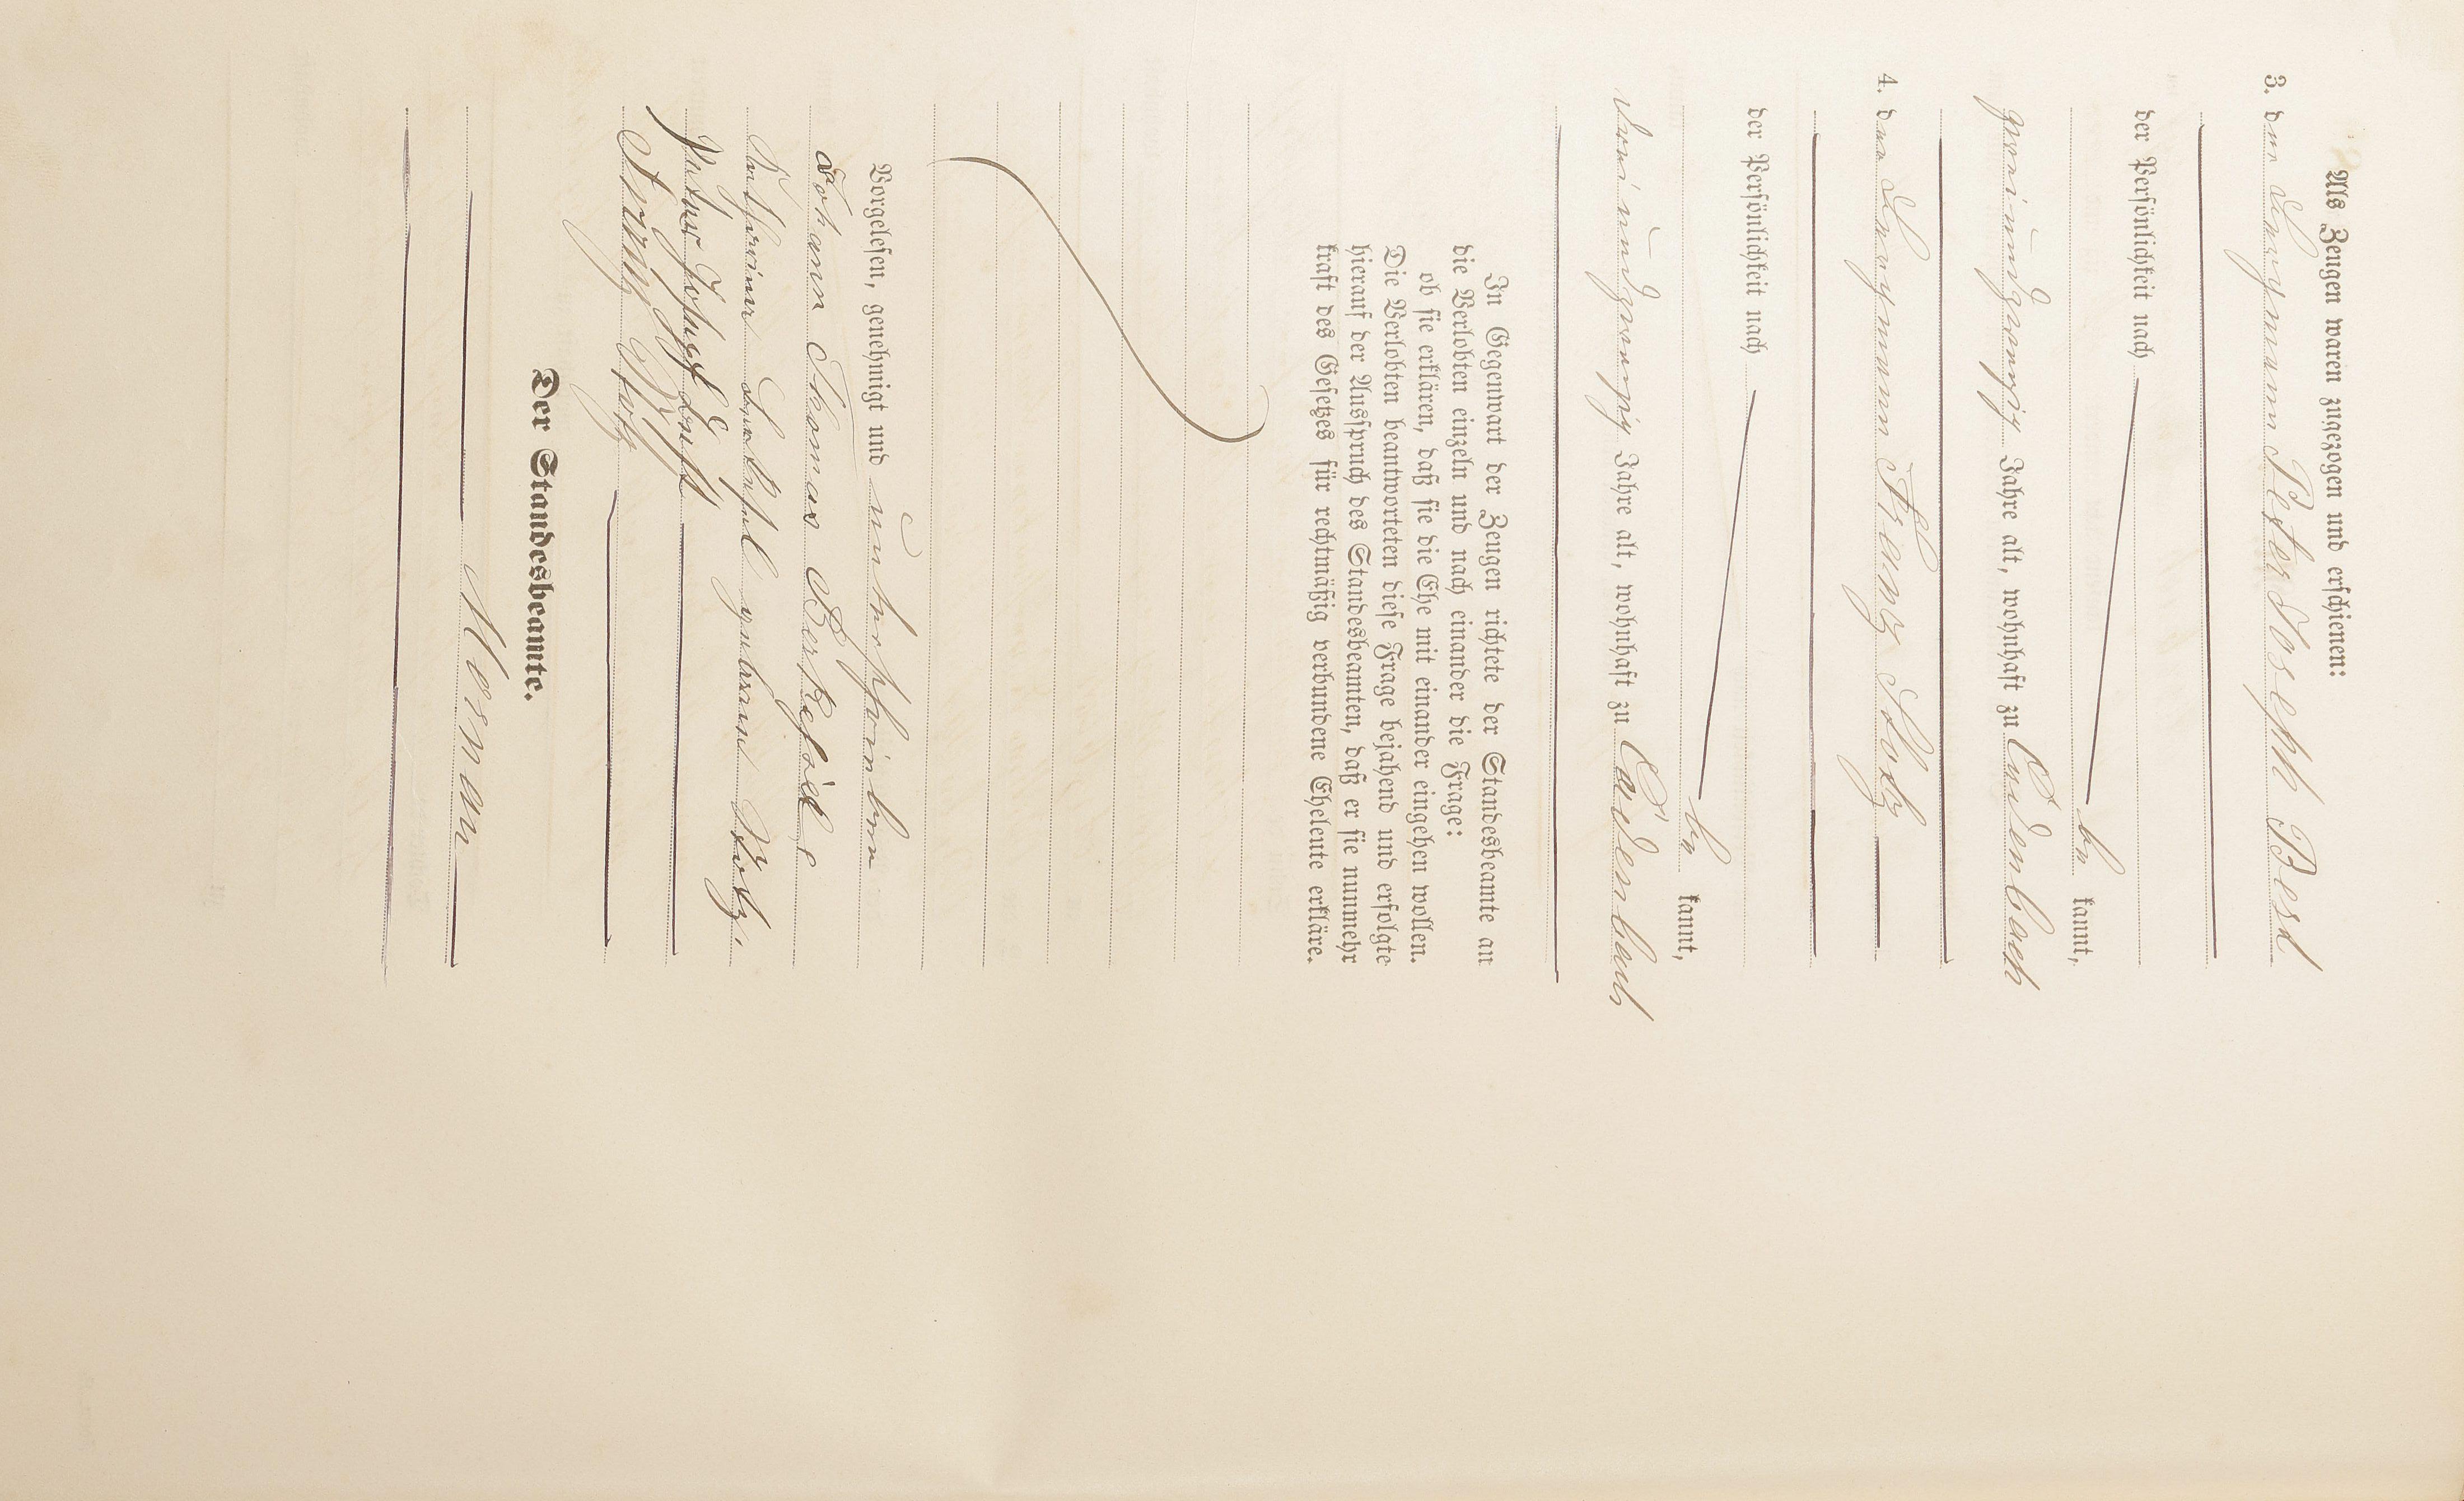 Als Zeugen waren zugezogen und erschienen:
3. der Bergmann Peter Joseph Best
der Persönlichkeit nach
be kannt,
zweiundzwanzig Jahre alt, wohnhaft zu Caidenbach
4. der Bergmann Franz Stotz
der Persönlichkeit nach
be kannt,
dreiundzwanzig Jahre alt, wohnhaft zu Caidenbach
In Gegenwart der Zeugen richtete der Standesbeamte an
die Verlobten einzeln und nach einander die Frage:
ob sie erklären, daß sie die Ehe mit einander eingehen wollen.
Die Verlobten beantworteten diese Frage bejahend und erfolgte
hierauf der Ausspruch des Standesbeamten, daß er sie nunmehr
kraft des Gesetzes für rechtmäßig verbundene Eheleute erkläre.
Vorgelesen, genehmigt und unterschrieben
Johann Thomas
Katharina geborene Stotz.
Peter Joseph Best
Franz Stotz
Der Standesbeamte.